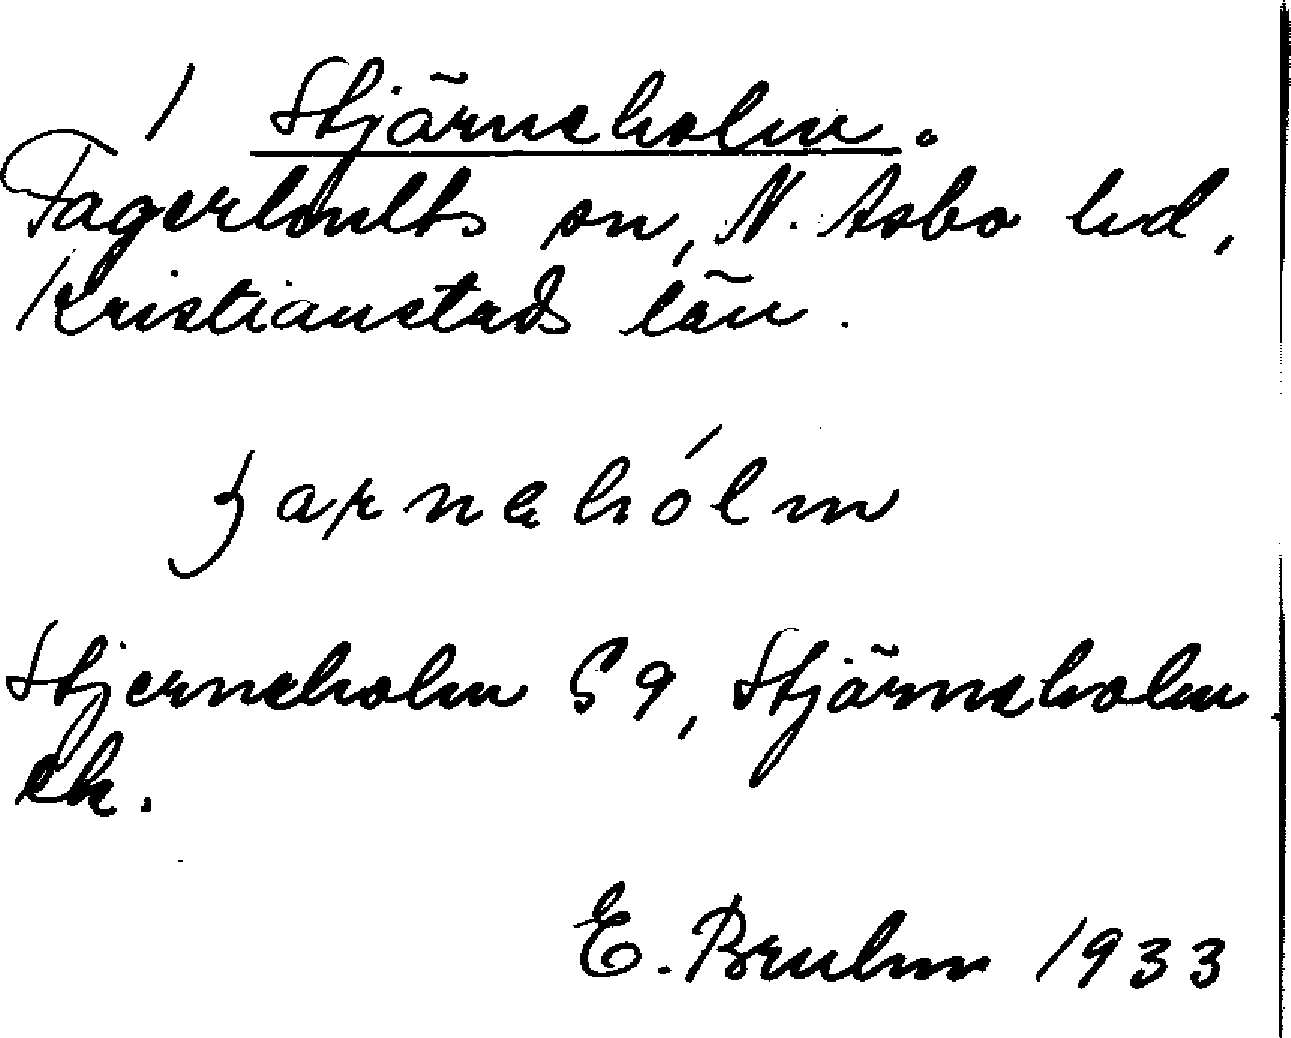 1 Stjärneholm.
Fagerhults sn, N. Åsbo hd,
Kristianstads län.
jarnahólm
Stjerneholm S 9, Stjärneholm
ek.
E. Bruhn 1933